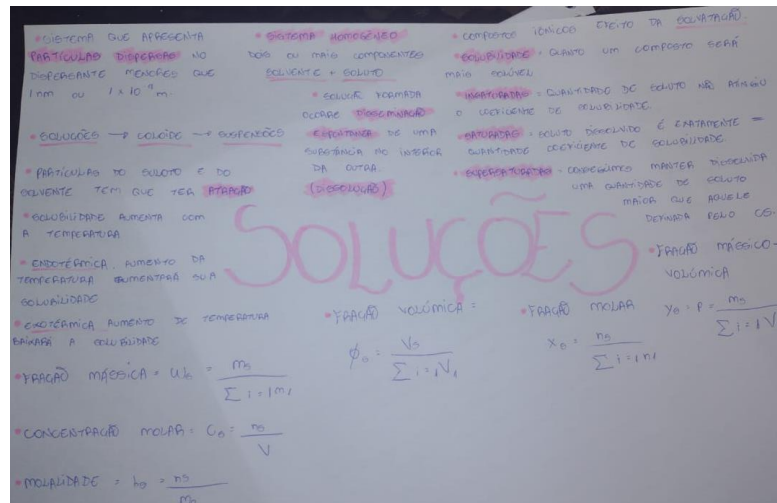 •SISTEMA QUE APRESENTA
PARTÍCULAS DISPERSAS NO
DISPERSANTE MENORES QUE
1 nm OU 1 x 10⁻⁹ m.
•SOLUÇÕES → COLOIDE → SUSPENSÕES
•PARTÍCULAS DO SOLUTO E DO
SOLVENTE TEM QUE TER ATRAÇÃO
•SOLUBILIDADE AUMENTA COM
A TEMPERATURA
•ENDOTÉRMICA AUMENTO DA
TEMPERATURA AUMENTARÁ SUA
SOLUBILIDADE
•EXOTÉRMICA AUMENTO DE TEMPERATURA
BAIXARÁ A SOLUBILIDADE
•SISTEMA HOMOGÊNEO
DOIS OU MAIS COMPONENTES
SOLVENTE + SOLUTO
•SOLUÇÃO FORMADA
OCORRE DISSEMINAÇÃO
ESPONTÂNEA DE UMA
SUBSTÂNCIA NO INTERIOR
DA OUTRA.
(DISSOLUÇÃO)
•COMPOSTOS IÔNICOS EFEITO DA SOLVATAÇÃO.
•SOLUBILIDADE = QUANTO UM COMPOSTO SERÁ
MAIS SOLÚVEL
•INSATURADAS = QUANTIDADE DE SOLUTO NÃO ATINGIU
O COEFICIENTE DE SOLUBILIDADE.
•SATURADAS = SOLUTO DISSOLVIDO É EXATAMENTE =
QUANTIDADE COEFICIENTE DE SOLUBILIDADE.
•SUPERSATURADAS = CONSEGUIMOS MANTER DISSOLVIDA
UMA QUANTIDADE DE SOLUTO
MAIOR QUE AQUELE
PELO CS.
SOLUÇÕES
•FRAÇÃO MÁSSICO-
VOLÚMICA
•FRAÇÃO VOLÚMICA =
•FRAÇÃO MOLAR
•FRAÇÃO MÁSSICA =
•CONCENTRAÇÃO MOLAR =
•MOLALIDADE =